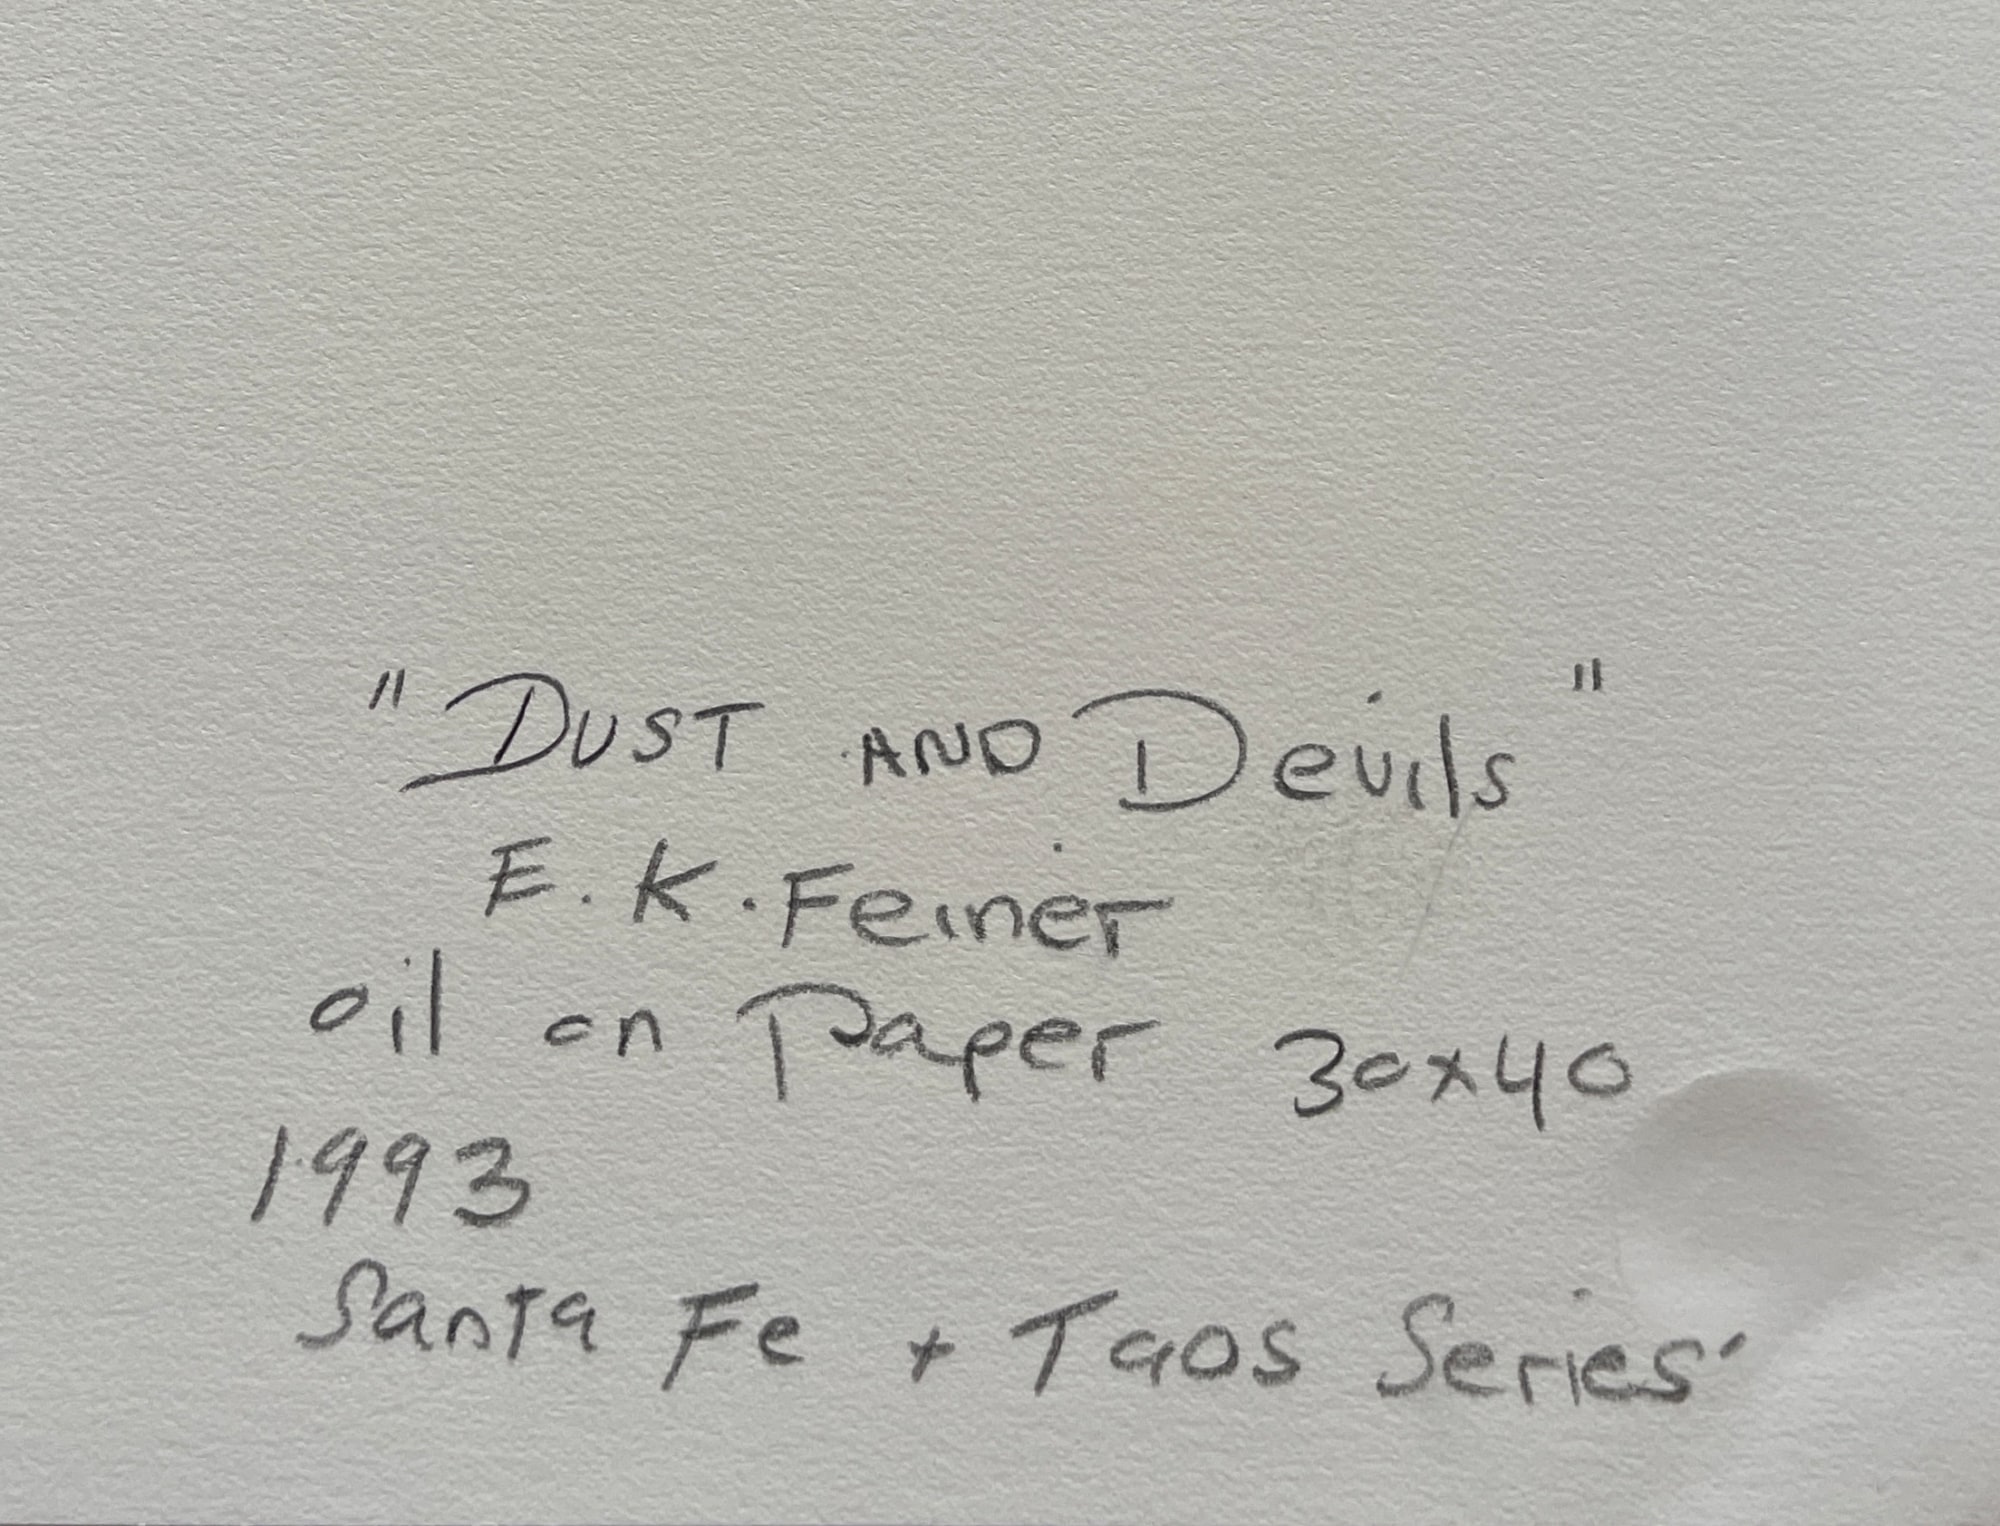 "DUST AND Devils"
E. K. Feiner
oil on Paper 30x40
1993
Santa Fe + Taos Series